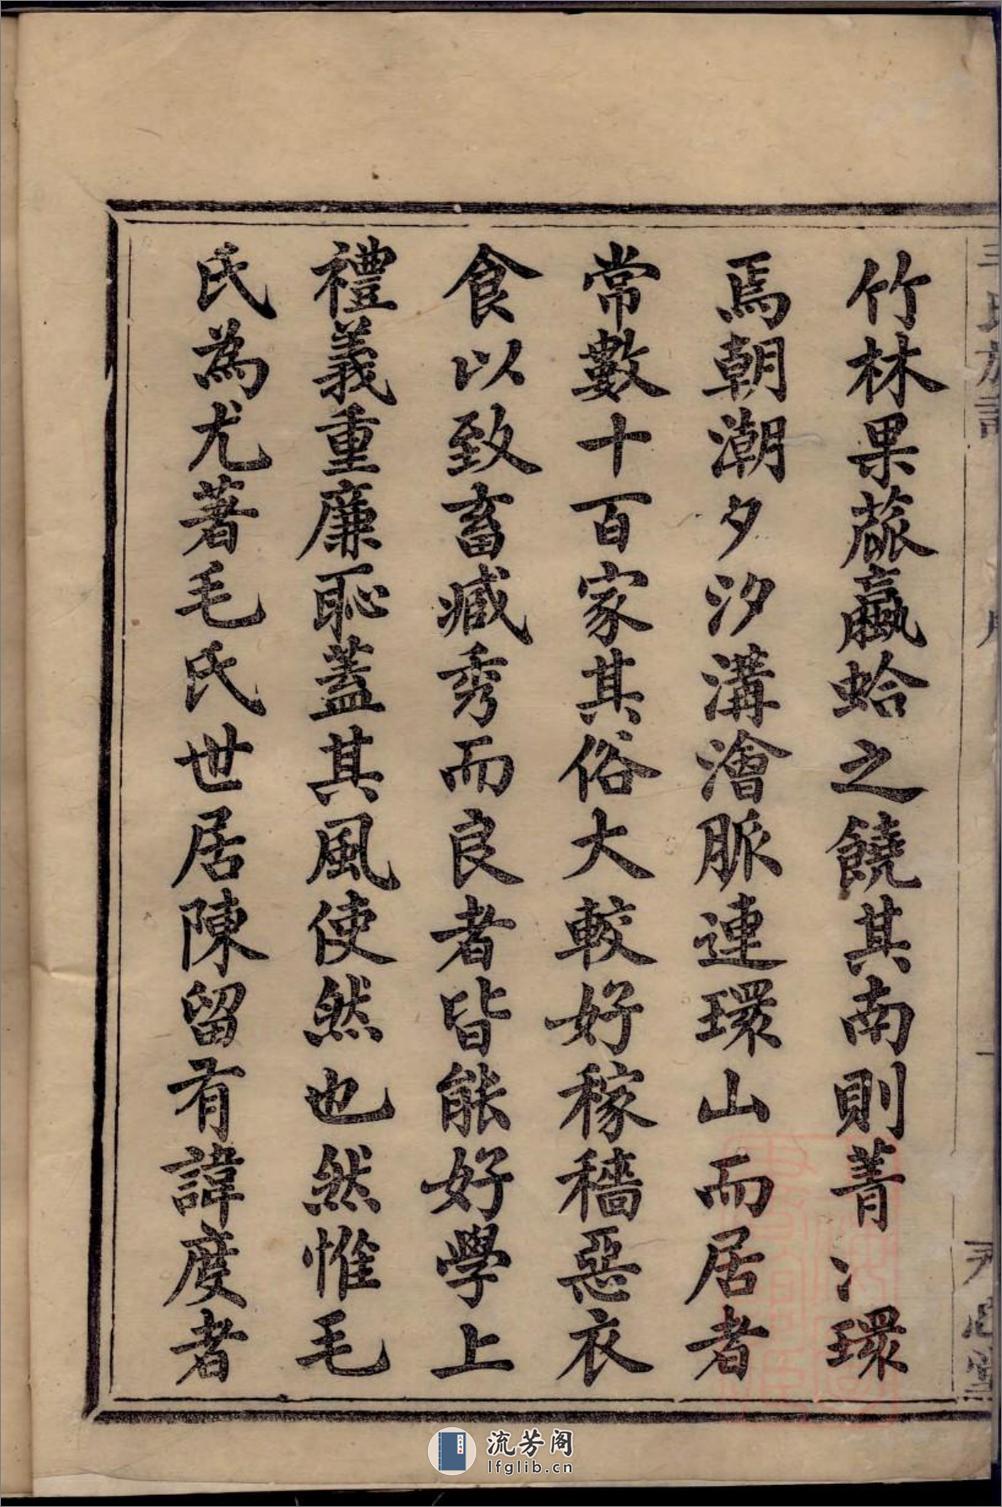 竹林果蓏蠃蛤之饒其南則菁〻環
焉朝潮夕汐溝澮脈連環山而居者
常數十百家其俗大較好稼穡惡衣
食以致畜臧秀而良者皆能好學上
禮義重廉恥蓋其風使然也然惟毛
氏為尤著毛氏世居陳留有諱度者
流芳阁
lfglib.cn